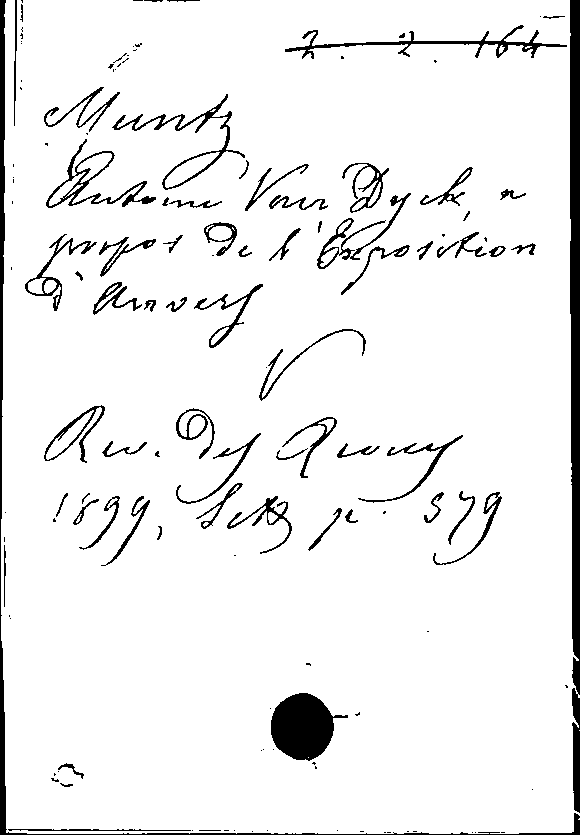 2. 2. 164
Muntz
Antoine Van Dyck, a
propos de l'Exposition
d'Anvers
V
Rev. des Revues
1899, Sept p. 579